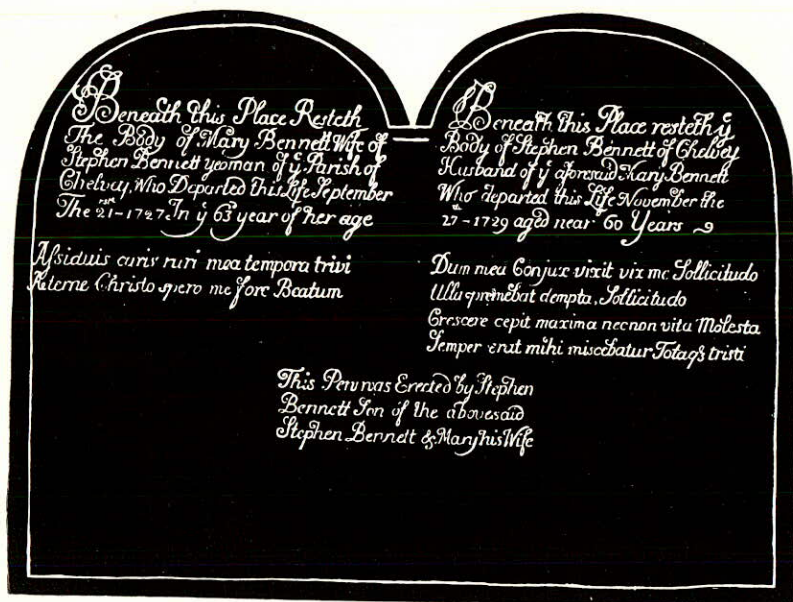 Beneath this Place Resteth
The Body of Mary Bennett Wife of
Stephen Bennett yeoman of yͤ Parish of
Chelvey, Who Departed this Life September
The 21ˢᵗ-1727 In yͤ 63 year of her age
Assiduis curis ruri mea tempora trivi
Æterne Christo spero me fore Beatum
Beneath this Place resteth yͤ
Body of Stephen Bennett of Chelvey
Husband of yͤ aforesaid Mary Bennett
Who departed this Life November the
27-1729 aged near 60 Years
Dum mea Conjux vixit vix me Sollicitudo
Ulla premebat dempta, Sollicitudo
Crescere cepit maxima necnon vita Molesta
Semper erat mihi miscebatur Totaqꝫ tristi
This Pew was Erected by Stephen
Bennett Son of the abovesaid
Stephen Bennett & Mary his Wife